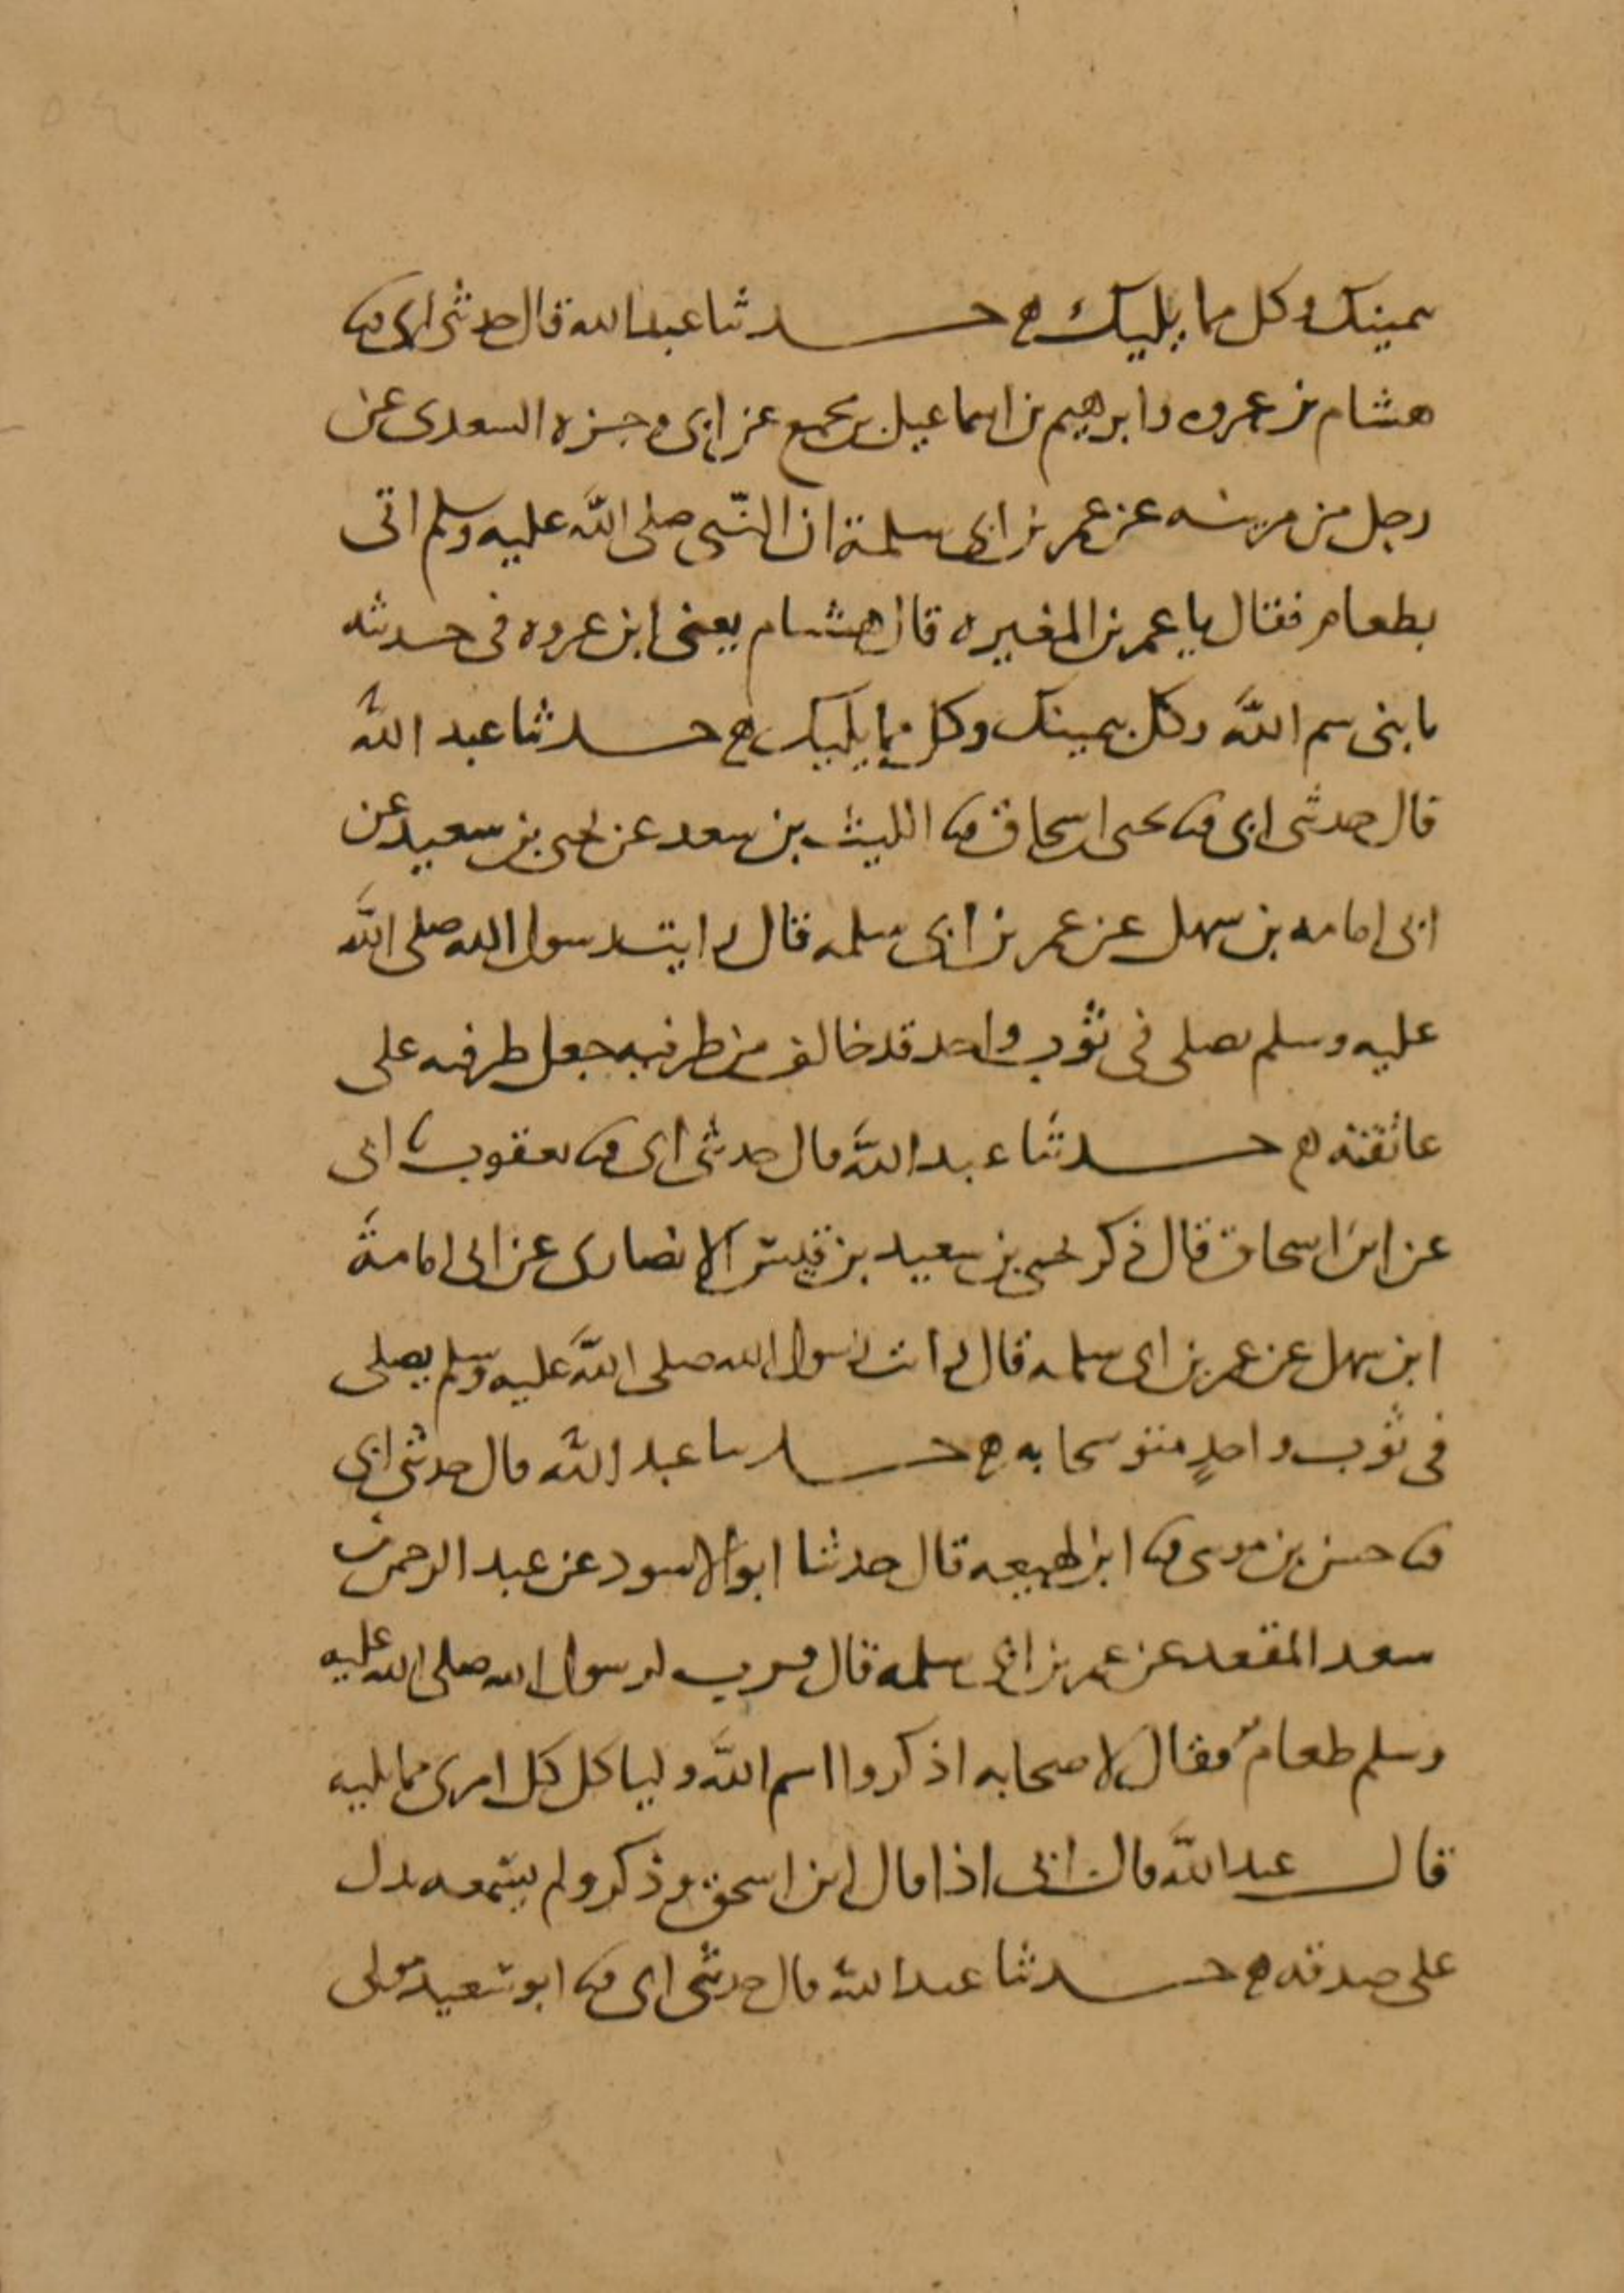 بيمينك وكل مما يليك حدثنا عبد الله قال حدثنى ابى ثنا
هشام بن عروه وابرهيم بن اسماعيل بن مجمع عن ابى وجزه السعدى عن
رجل من مزينه عن عمر بن ابى سلمة ان النبى صلى الله عليه وسلم اتى
بطعام فقال يا عمر بن المغيره قال هشام يعنى ابن عروه فى حديثه
يا بنى سم الله وكل بيمينك وكل مما يليك حدثنا عبد الله
قال حدثنى ابى ثنا يحيى اسحاق ثنا الليث بن سعد عن يحيى بن سعيد عن
ابى امامه بن سهل عن عمر بن ابى سلمه قال رايت رسول الله صلى الله
عليه وسلم يصلى فى ثوب واحد قد خالف من طرفيه جعل طرفيه على
عاتقته حدثنا عبد الله قال حدثنى ابى ثنا يعقوب ثنا ابى
عن ابن اسحاق قال ذكر يحيى بن سعيد بن قيس الانصارى عن ابى امامة
ابن سهل عن عمر بن ابى سلمه قال رايت رسول الله صلى الله عليه وسلم يصلى
فى ثوب واحدٍ متوشحا به حدثنا عبد الله قال حدثنى ابى
ثنا حسن بن موسى ثنا ابن لهيعه قال حدثنا ابو الاسود عن عبد الرحمن بن
سعد المقعد عن عمر بن ابى سلمه قال قرب لرسول الله صلى الله عليه
وسلم طعام فقال لاصحابه اذكروا اسم الله ولياكل كل امرى مما يليه
قال عبد الله قال ابى اذا قال ابن اسحق وذكر ولم يسمعه يدل
على صدقه حدثنا عبد الله قال حدثنى ابى ثنا ابو سعيد مولى